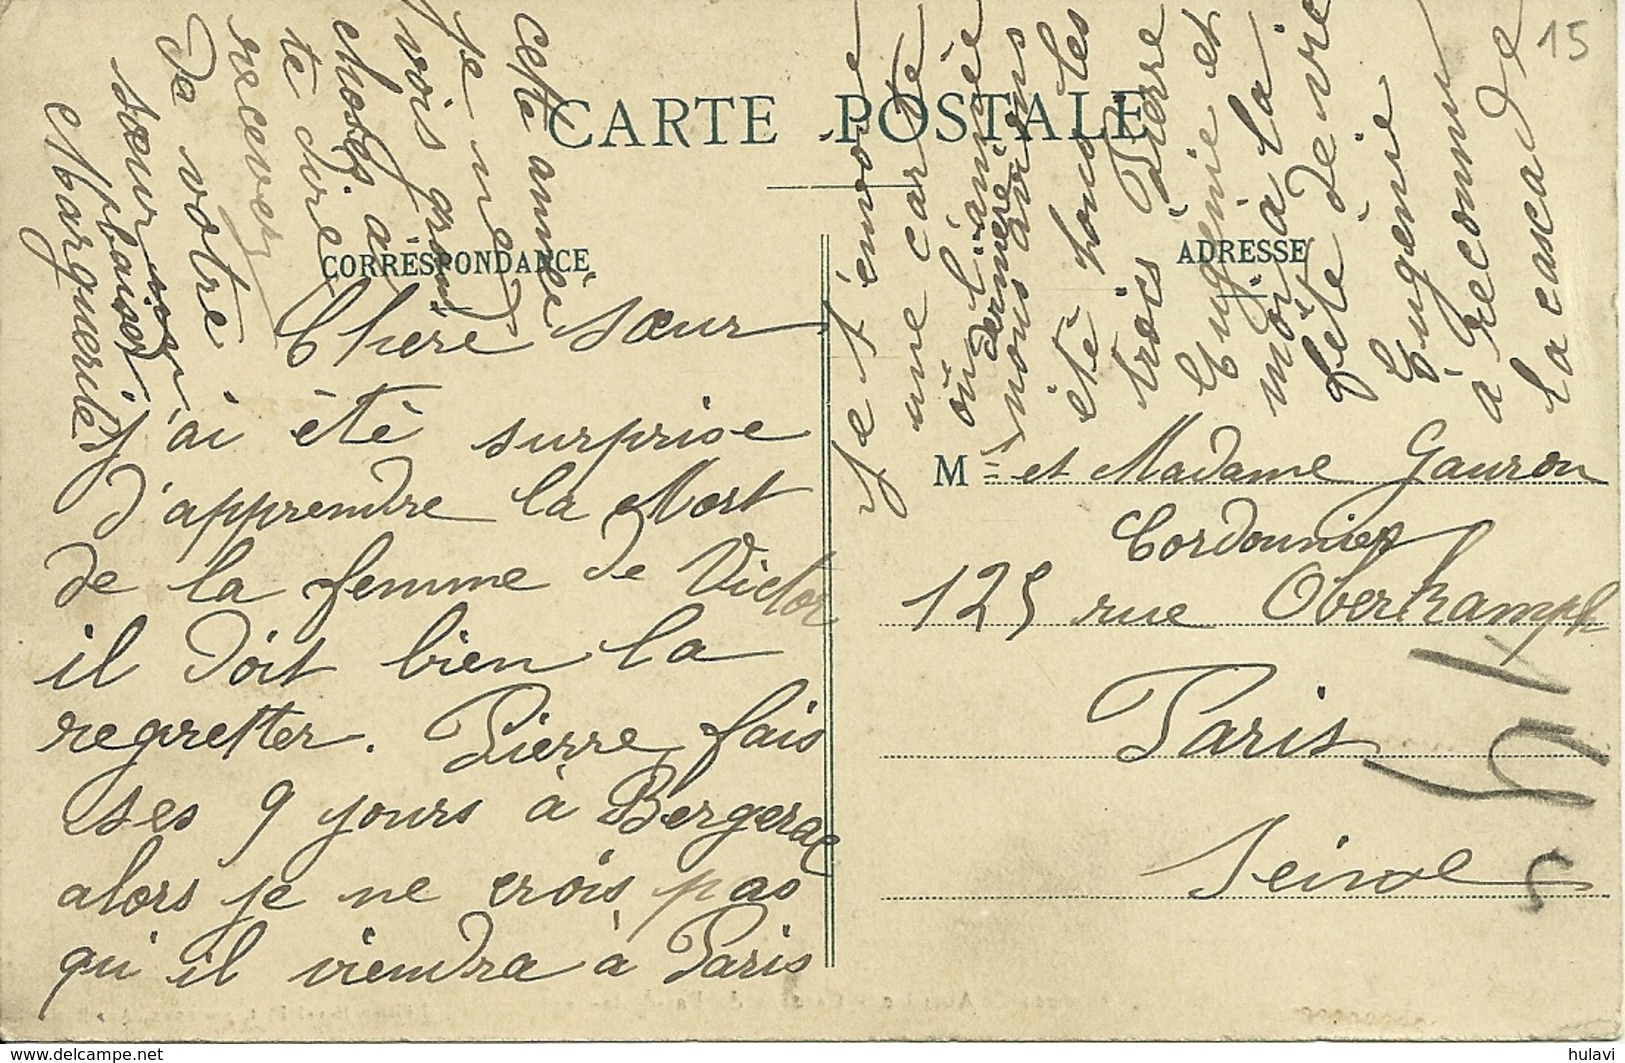 15
CARTE POSTALE
CORRESPONDANCE
ADRESSE
Chère sœur
j'ai été surprise
d'apprendre la Mort
de la femme de Victor
il doit bien la
regretter. Pierre fais
ses 9 jours à Bergerac
alors je ne crois pas
qu il viendra à Paris
cette année
je ne
vois grand
choses a
te dire
recevez
de votre
sœur
1 baiser
Marguerite
je t'envoie
une carte
où l'année
dernière
nous avions
été tous les
trois Pierre
Eugénie et
moi à la
fête de vic
Eugenie
à reconnu
la cascade
M et Madame Gauron
Cordonnier
125 rue Oberkampf
Paris
Seine
hulavi